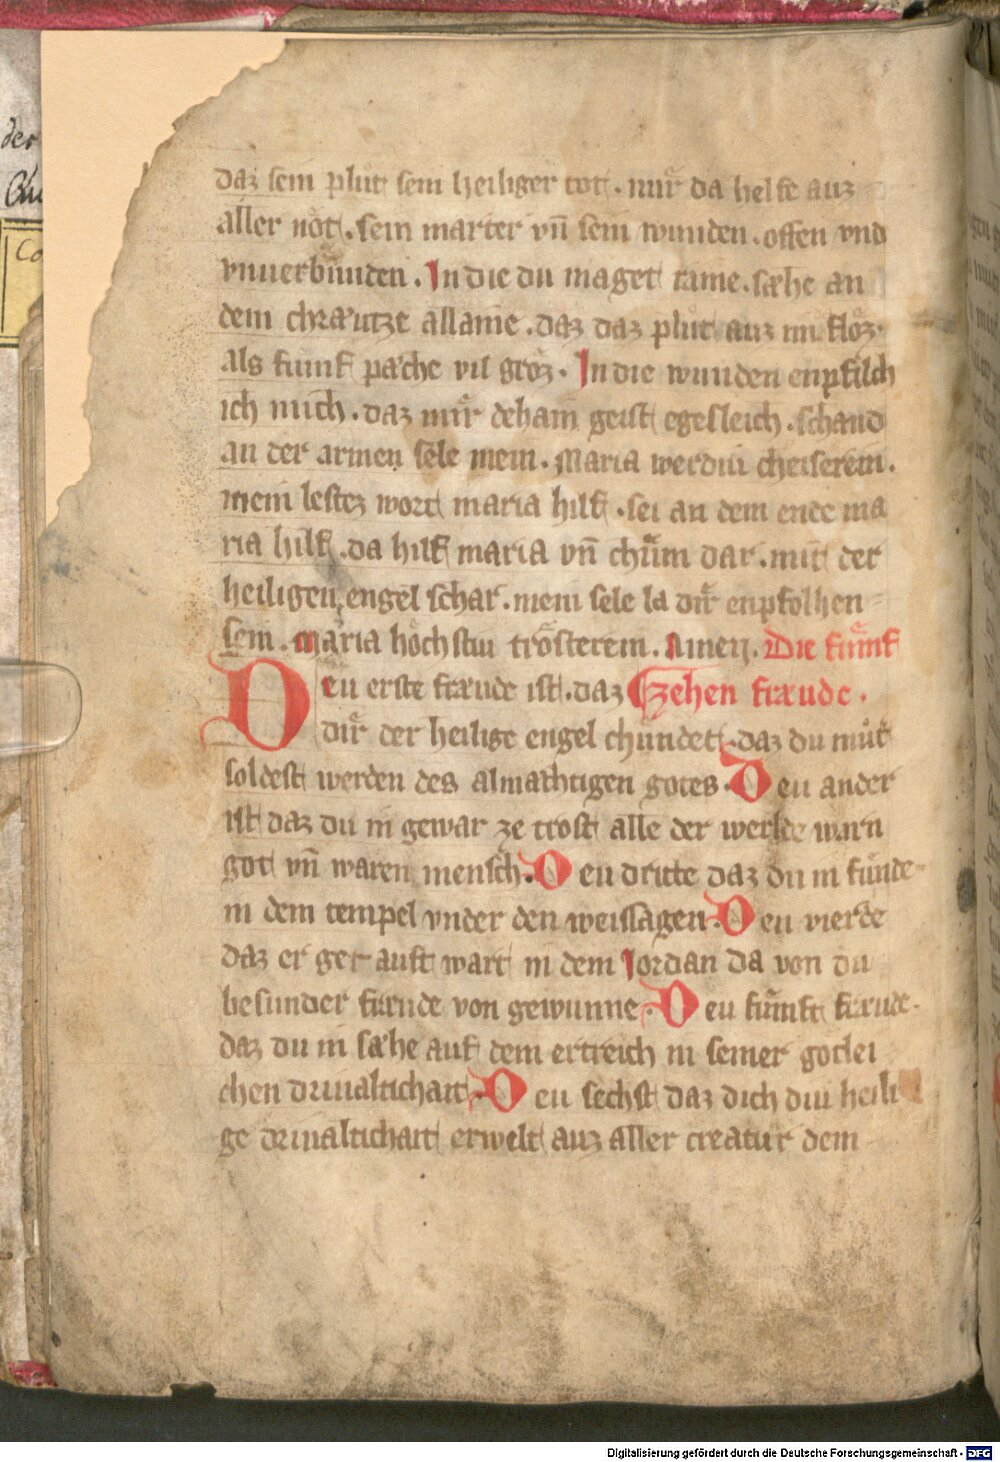 daz sein plut sein heiliger tot . mir da helfe auz
aller not . sein marter vñ sein wunden . offen vnd
vnuerbunden . In die du maget raine . sæhe an
dem chræutze allaine . daz daz plut auz im floz .
als fumf pæche vil groz . In die wunden enpfilch
ich mich . daz mir dehain geist egesleich . schand
an der armen sele mein . Maria werdiu cheiserein .
mein lestez wort maria hilf . sei an dem ende ma
ria hilf . da hilf maria vñ chům dar . mit der
heiligen engel schar . mein sele la dir enpfolhen
sein . maria hochstiu trösterein . Amen . Die fůmf
Deu erste fræude ist . daz zehen fræude .
dir der heilige engel chundet . daz du můt
soldest werden des almæhtigen gotes . Deu ander
ist daz du in gewær ze trost alle der werlde warn
got vñ waren mensch . Deu dritte daz du in funde
in dem tempel vnder den weissagen . Deu vierde
daz er get auft wart in dem Jordan da von du
besunder fræude von gewunne . Deu fůmft fræude .
daz du in sæhe auf dem ertreich in seiner gotlei
chen driualtichait . Deu sechst daz dich diu heili
ge driualtichait erwelt auz aller creatur dem
der
Co
Digitalisierung gefördert durch die Deutsche Forschungsgemeinschaft - DFG